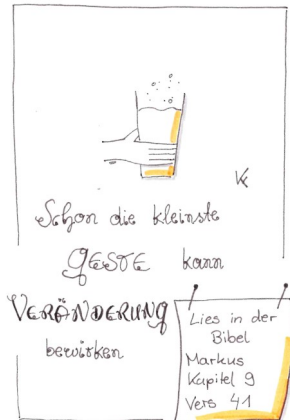 VK
Schon die kleinste
GESTE kann
VERÄNDERUNG
bewirken
Lies in der
Bibel
Markus
Kapitel 9
Vers 41